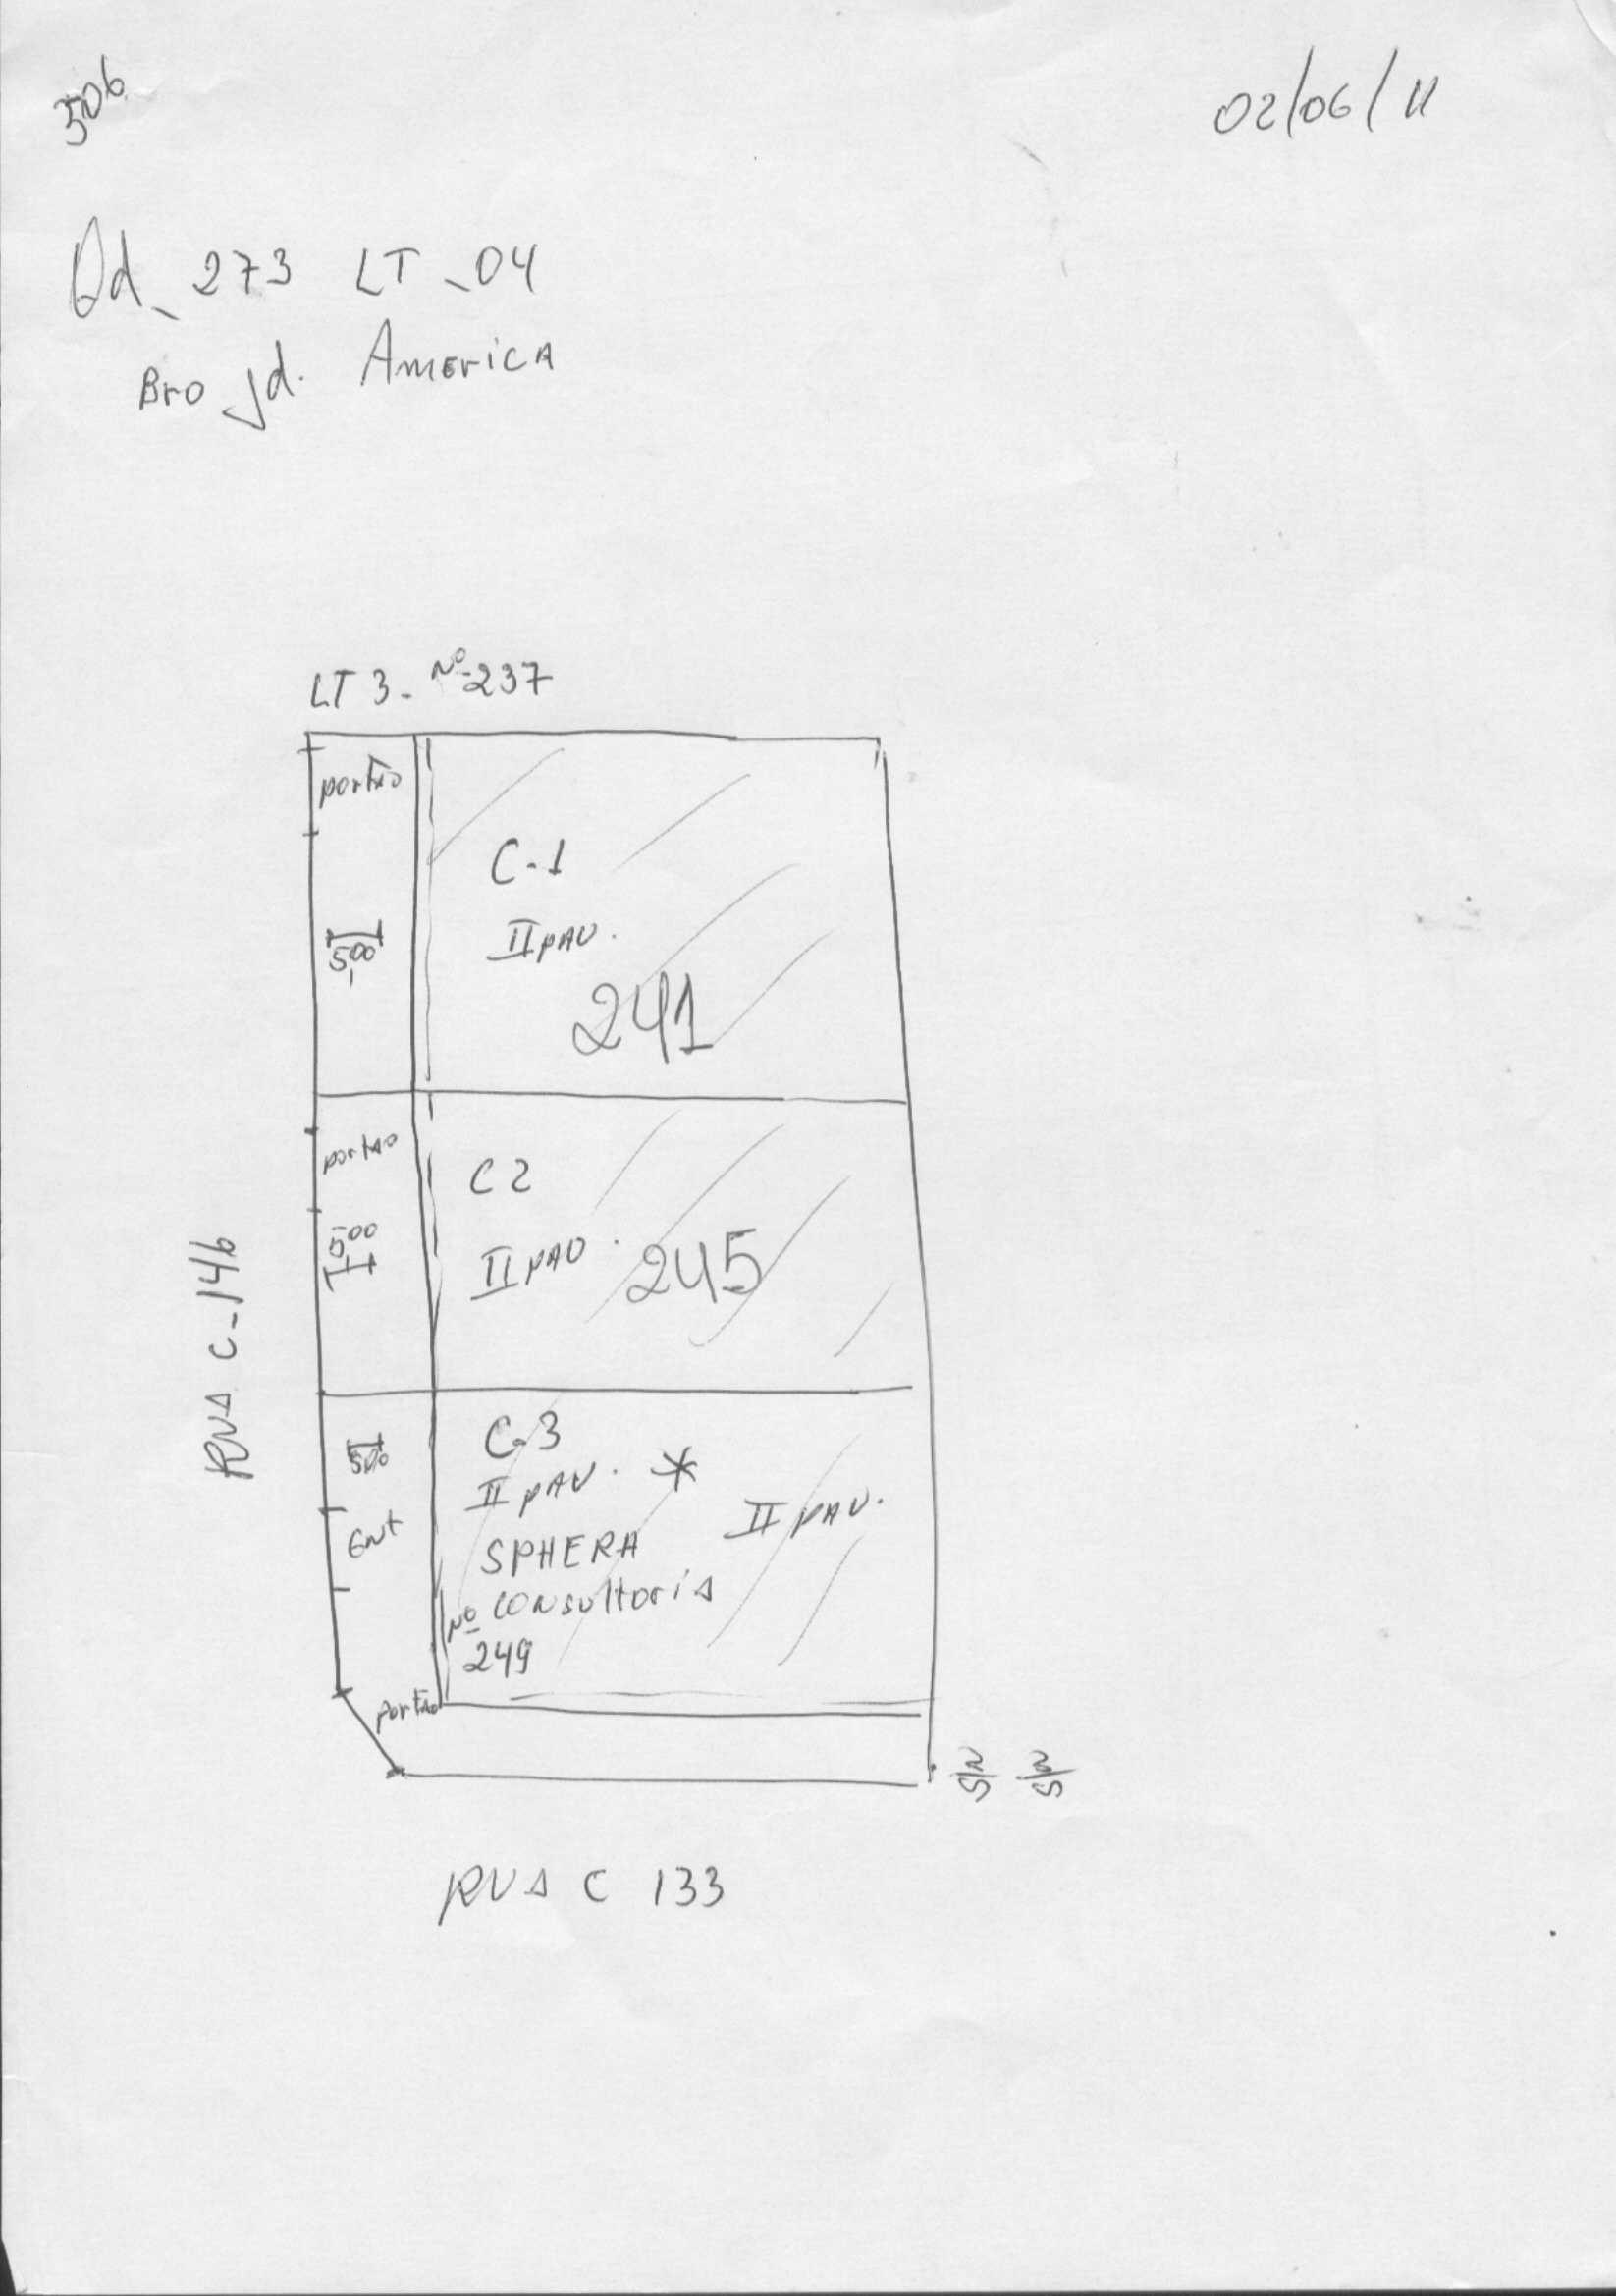 506
02/06/11
Qd_ 273 LT_04
Bro Jd. America
LT 3- Nº 237
portão
C-1
II pav.
5,00
241
portao
C 2
5,00
II pav.
245
Rua C-146
C-3
5,00
II pav. *
II pav.
Ent
SPHERA
consultoria
Nº
249
portão
S/N S/N
Rua C 133